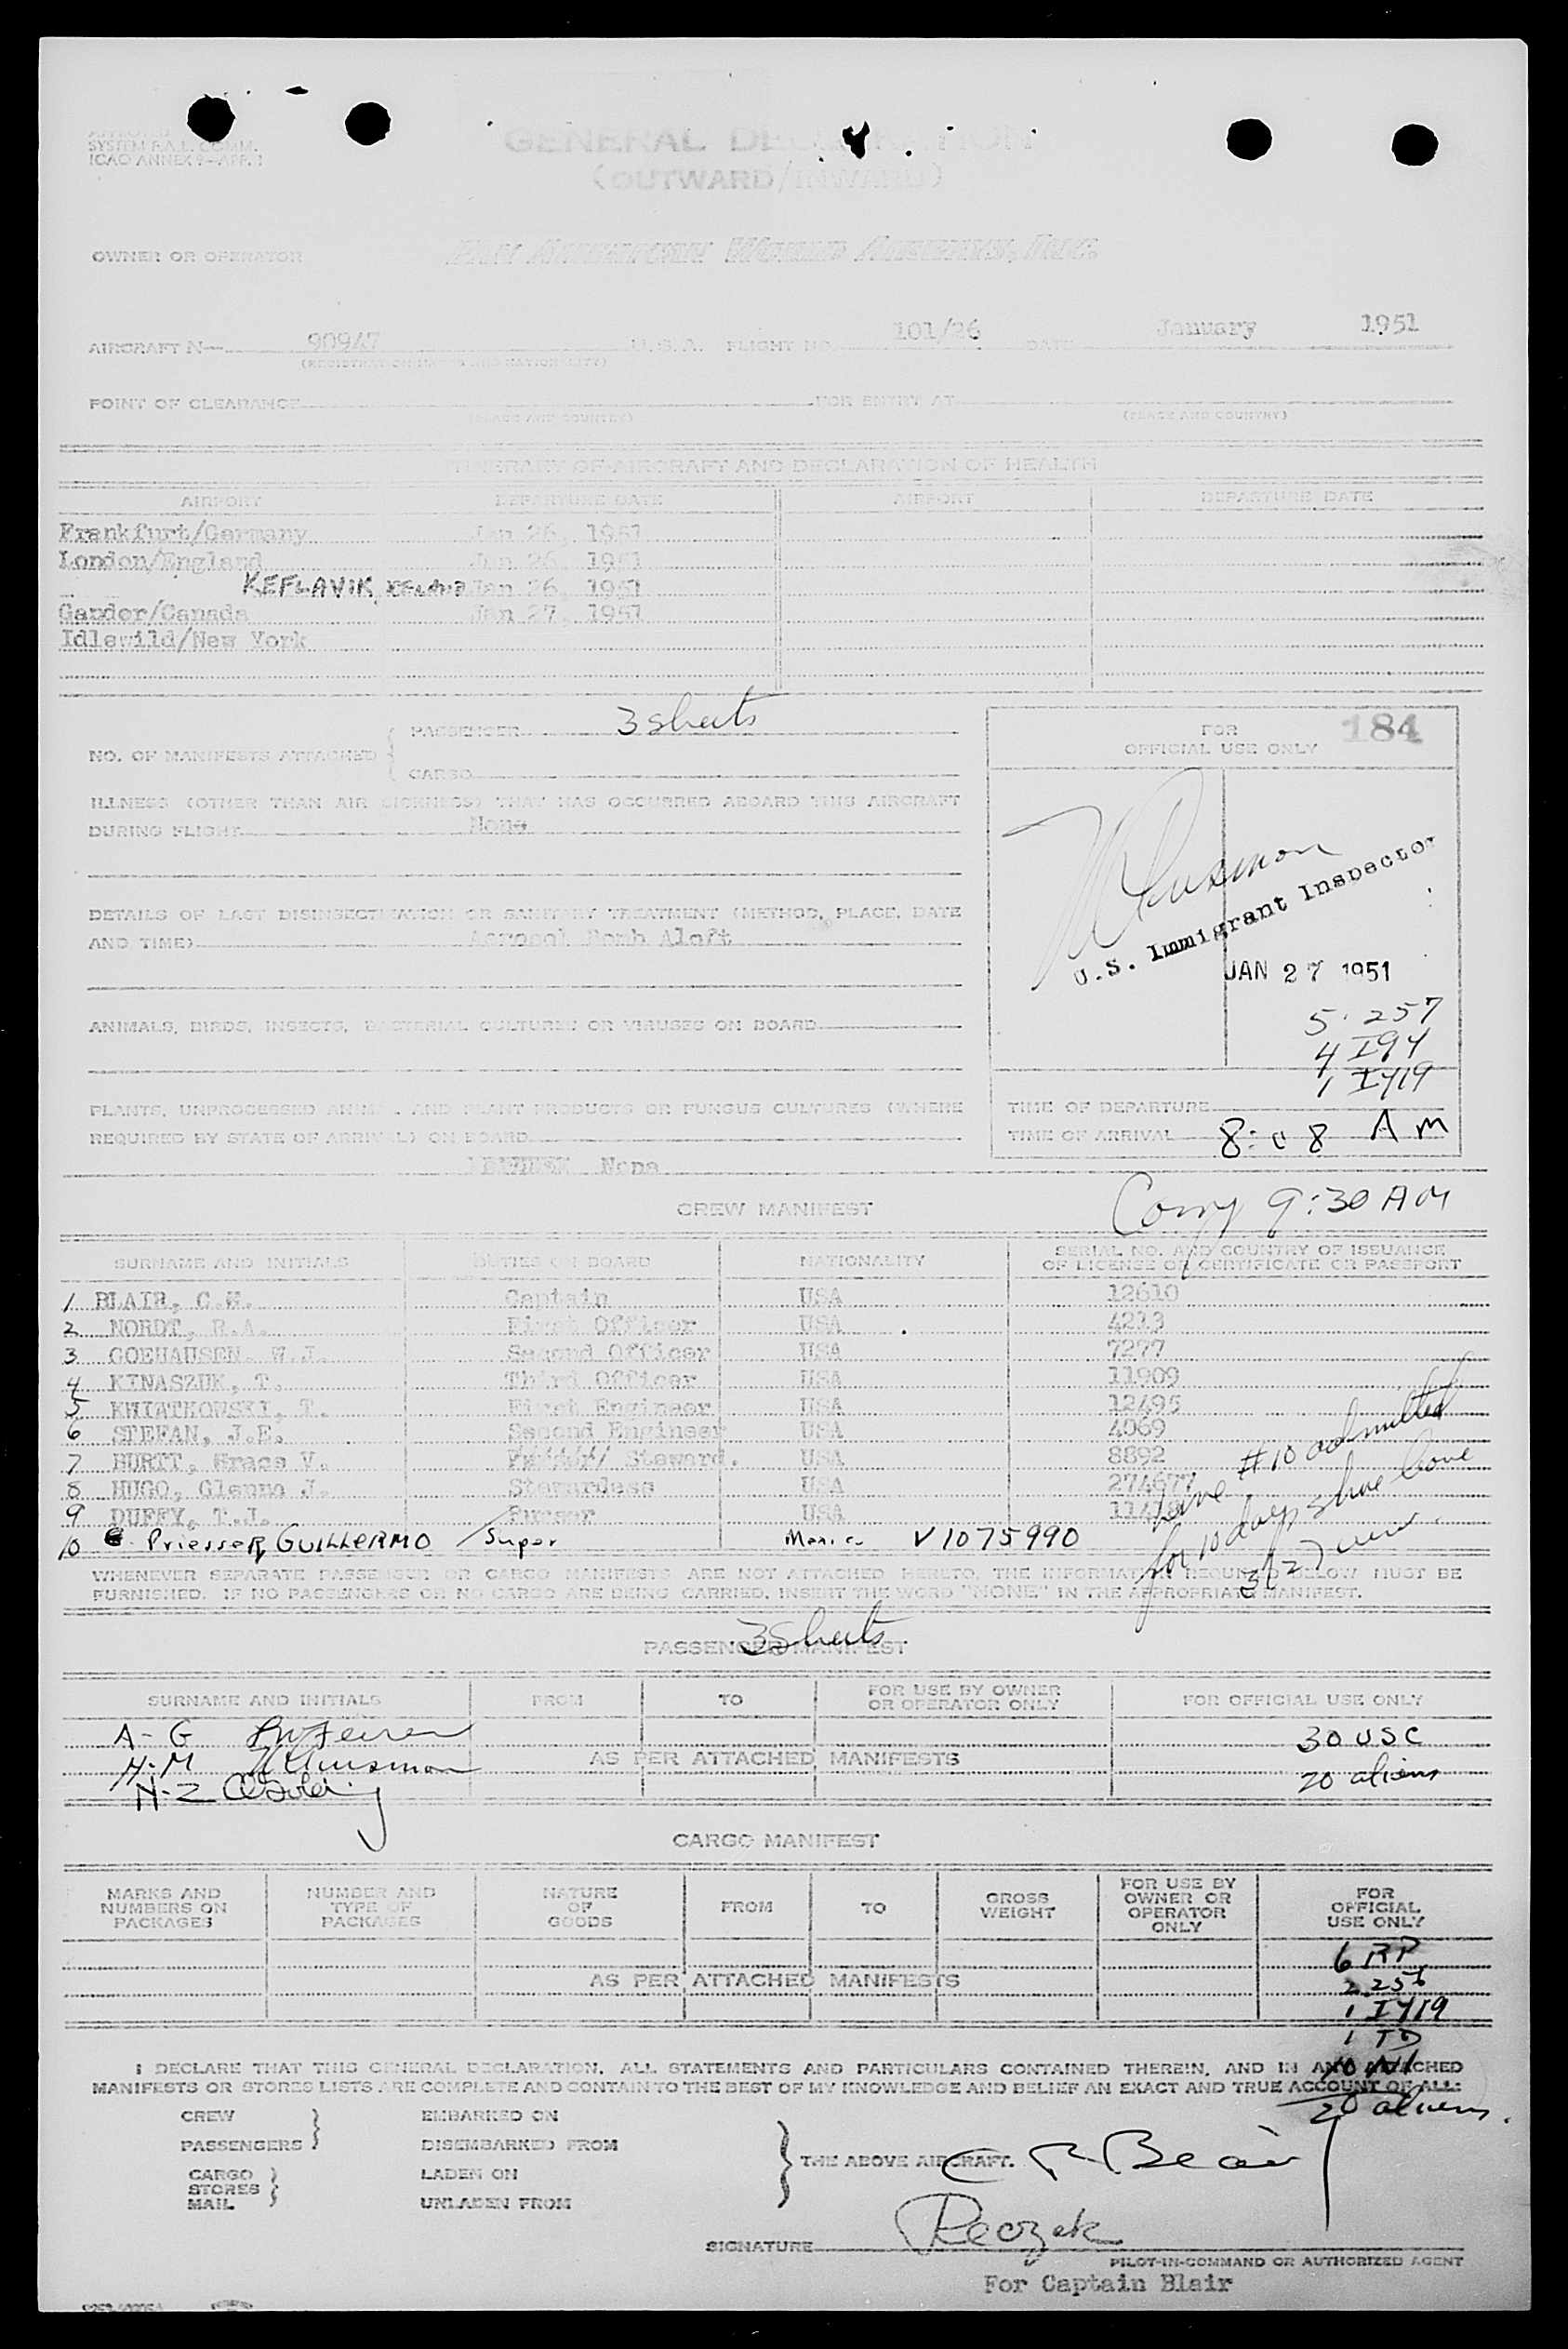 SYSTEM P.A.L. COMM.
ICAO ANNEX 9—APP. 1
GENERAL DECLARATION
(OUTWARD/INWARD)
OWNER OR OPERATOR PAN AMERICAN WORLD AIRWAYS, INC.
AIRCRAFT N— 90947 U.S.A. FLIGHT NO. 101/26 DATE January 1951
(REGISTRATION MARKS AND NATIONALITY)
POINT OF CLEARANCE FOR ENTRY AT
(PLACE AND COUNTRY) (PLACE AND COUNTRY)
ITINERARY OF AIRCRAFT AND DECLARATION OF HEALTH
AIRPORT DEPARTURE DATE AIRPORT DEPARTURE DATE
Frankfurt/Germany Jan 26, 1951
London/England Jan 26, 1951
KEFLAVIK Jan 26, 1951
Gander/Canada Jan 27, 1951
Idlewild/New York
NO. OF MANIFESTS ATTACHED
PASSENGER 3 sheets
CARGO
FOR OFFICIAL USE ONLY 184
ILLNESS (OTHER THAN AIR SICKNESS) THAT HAS OCCURRED ABOARD THIS AIRCRAFT
DURING FLIGHT None
DETAILS OF LAST DISINSECTIZATION OR SANITARY TREATMENT (METHOD, PLACE, DATE
AND TIME) Aerosol Bomb Aloft
U.S. Immigrant Inspector
JAN 27 1951
5 257
4 I94
1 I419
ANIMALS, BIRDS, INSECTS, BACTERIAL CULTURES OR VIRUSES ON BOARD
PLANTS, UNPROCESSED ANIMAL AND PLANT PRODUCTS OR FUNGUS CULTURES (WHERE
REQUIRED BY STATE OF ARRIVAL) ON BOARD
None
TIME OF DEPARTURE
TIME OF ARRIVAL 8:08 AM
9:30 AM
CREW MANIFEST
SURNAME AND INITIALS DUTIES ON BOARD NATIONALITY SERIAL NO. AND COUNTRY OF ISSUANCE OF LICENSE OR CERTIFICATE OR PASSPORT
1 BLAIR, C.F. Captain USA 12610
2 NORDT, R.A. First Officer USA 4213
3 GOEHAUSEN, W.J. Second Officer USA 7277
4 KINASZUK, T. Third Officer USA 11909
5 KWIATKOWSKI, T. First Engineer USA 12495
6 STEFAN, J.E. Second Engineer USA 4069
7 BURTT, Grace V. Steward. USA 8892
8 HUGO, Glenna J. Stewardess USA 274677
9 DUFFY, T.J. Purser USA
10 Priesser, GUILLERMO Super V1075990
Line #10 admitted
for 10 days shore leave
WHENEVER SEPARATE PASSENGER OR CARGO MANIFESTS ARE NOT ATTACHED HERETO, THE INFORMATION REQUIRED BELOW MUST BE
FURNISHED. IF NO PASSENGERS OR NO CARGO ARE BEING CARRIED, INSERT THE WORD "NONE" IN THE APPROPRIATE MANIFEST.
3 Sheets
PASSENGER MANIFEST
SURNAME AND INITIALS FROM TO FOR USE BY OWNER OR OPERATOR ONLY FOR OFFICIAL USE ONLY
A-G 30 USC
H-M AS PER ATTACHED MANIFESTS 20 aliens
N-Z
CARGO MANIFEST
MARKS AND NUMBERS ON PACKAGES NUMBER AND TYPE OF PACKAGES NATURE OF GOODS FROM TO GROSS WEIGHT FOR USE BY OWNER OR OPERATOR ONLY FOR OFFICIAL USE ONLY
6 RP
AS PER ATTACHED MANIFESTS
1 I419
1 TD
I DECLARE THAT THIS GENERAL DECLARATION, ALL STATEMENTS AND PARTICULARS CONTAINED THEREIN, AND IN ANY ATTACHED
MANIFESTS OR STORES LISTS ARE COMPLETE AND CONTAIN TO THE BEST OF MY KNOWLEDGE AND BELIEF AN EXACT AND TRUE ACCOUNT OF ALL:
20 aliens.
CREW EMBARKED ON
PASSENGERS DISEMBARKED FROM
THE ABOVE AIRCRAFT. Blair
CARGO LADEN ON
STORES
MAIL UNLADEN FROM
SIGNATURE
PILOT-IN-COMMAND OR AUTHORIZED AGENT
For Captain Blair